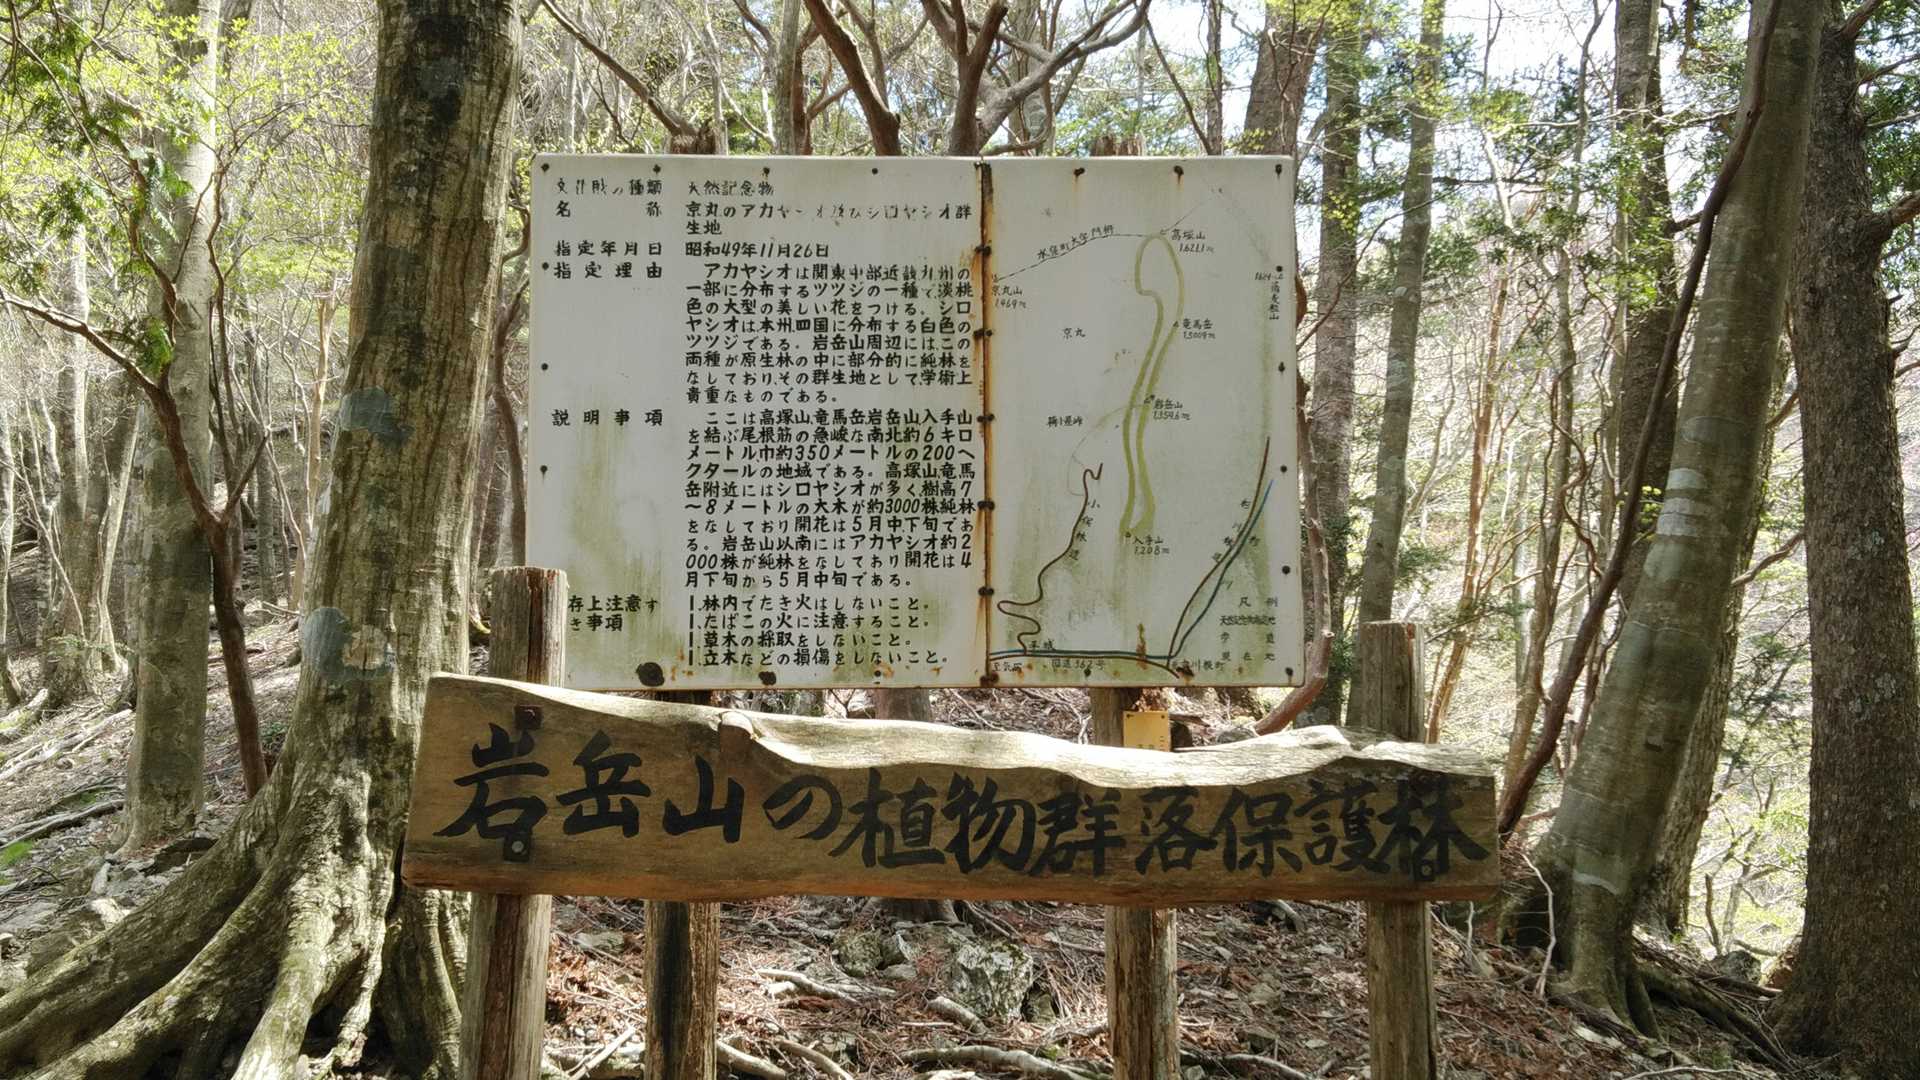 文化財の種類 天然記念物
名 称 京丸のアカヤシオ及びシロヤシオ群
生地
指定年月日 昭和49年11月26日
指定理由 アカヤシオは関東中部近畿九州の
一部に分布するツツジの一種で、淡桃
色の大型の美しい花をつける。シロ
ヤシオは本州、四国に分布する白色の
ツツジである。岩岳山周辺には、この
両種が原生林の中に部分的に純林を
なしており、その群生地として、学術上
貴重なものである。
説明事項 ここは高塚山、竜馬岳、岩岳山、入手山
を結ぶ尾根筋の急峻な南北約6キロ
メートル巾約350メートルの200ヘ
クタールの地域である。高塚山、竜馬
岳附近にはシロヤシオが多く、樹高7
〜8メートルの大木が約3000株純林
をなしており開花は5月中下旬であ
る。岩岳山以南にはアカヤシオ約2
000株が純林をなしており開花は4
月下旬から5月中旬である。
存上注意す 1.林内でたき火はしないこと。
き事項 1.たばこの火に注意すること。
1.草木の採取をしないこと。
1.立木などの損傷をしないこと。
水窪町大字門桁
高塚山
1,621.1m
京丸山
1,469m
蕎麦粒山
京丸
竜馬岳
1,500.9m
岩岳山
1,354.6m
小俣林道
入手山
1,208m
凡例
平城
国道362号
岩岳山の植物群落保護林